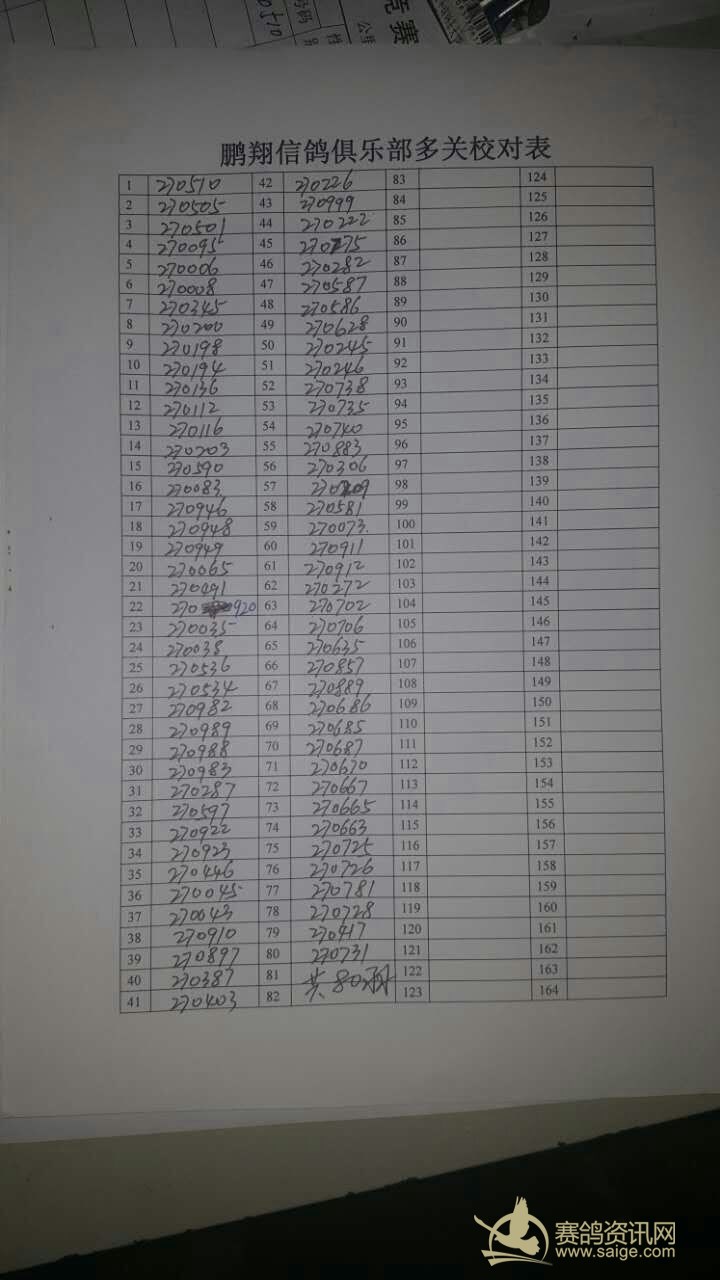 鹏翔信鸽俱乐部多关校对表
1 270510 42 270226 83 124
2 270505 43 270999 84 125
3 270501 44 270222 85 126
4 270095 45 86 127
5 270006 46 270282 87 128
6 270008 47 270587 88 129
7 270345 48 270586 89 130
8 270200 49 270628 90 131
9 270198 50 270245 91 132
10 270194 51 270246 92 133
11 270136 52 270738 93 134
12 270112 53 270735 94 135
13 270116 54 270740 95 136
14 270203 55 270883 96 137
15 270590 56 270306 97 138
16 270083 57 98 139
17 270946 58 270581 99 140
18 270948 59 270073. 100 141
19 270949 60 270911 101 142
20 270065 61 270912 102 143
21 270091 62 270272 103 144
22 270920 63 270702 104 145
23 270035 64 270706 105 146
24 270038 65 270635 106 147
25 270536 66 270857 107 148
26 270534 67 270889 108 149
27 270982 68 270686 109 150
28 270989 69 270685 110 151
29 270988 70 270687 111 152
30 270983 71 270670 112 153
31 270287 72 270667 113 154
32 270597 73 270665 114 155
33 270922 74 270663 115 156
34 270923 75 270725 116 157
35 270446 76 270726 117 158
36 270045 77 270781 118 159
37 270043 78 270728 119 160
38 270910 79 270417 120 161
39 270897 80 270731 121 162
40 270387 81 共80羽 122 163
41 270403 82 123 164
赛鸽资讯网
www.saige.com